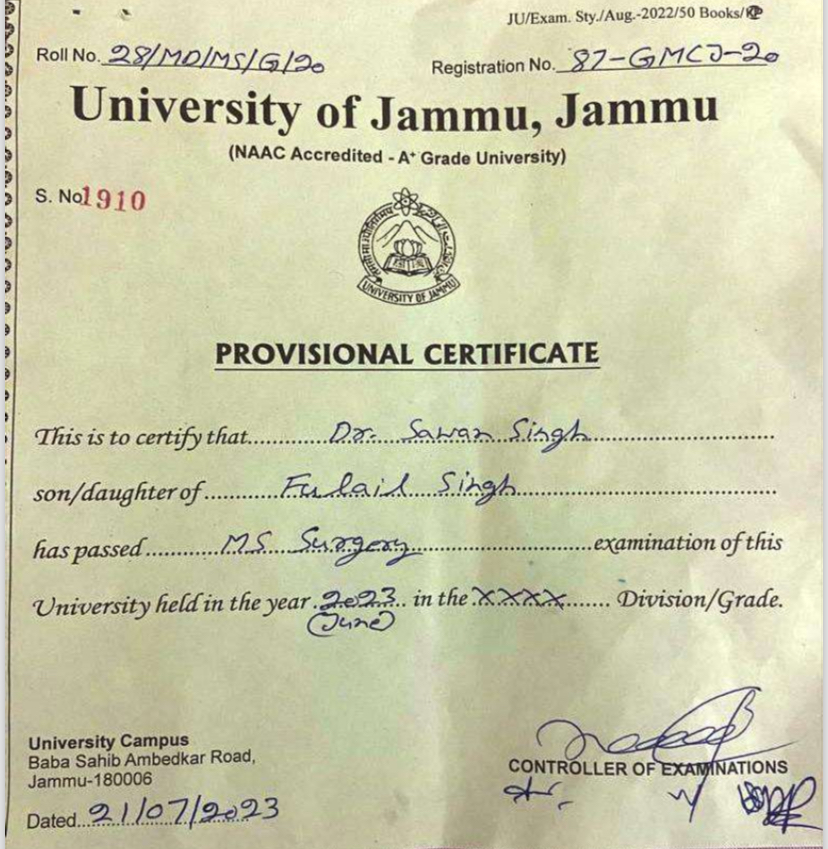 JU/Exam. Sty./Aug.-2022/50 Books/
Roll No. 28/MD/MS/G/20
Registration No. 87-GMCJ-20
University of Jammu, Jammu
(NAAC Accredited - A+ Grade University)
S. No 1910
UNIVERSITY OF JAMMU
PROVISIONAL CERTIFICATE
This is to certify that..........Dr. Sawan Singh..........
son/daughter of..........Fulail Singh..........
has passed..........MS Surgery..........examination of this
University held in the year .2023.. in the .XXXX....... Division/Grade.
(June)
University Campus
Baba Sahib Ambedkar Road,
Jammu-180006
CONTROLLER OF EXAMINATIONS
Dated...21/07/2023